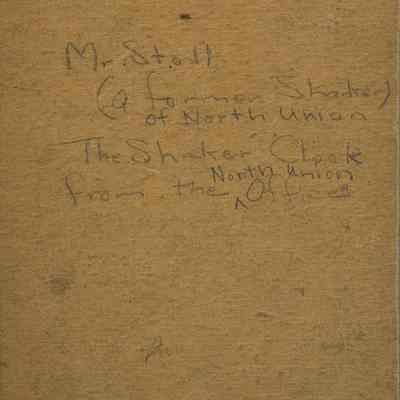 Mr. Stoll
(a former Shaker)
of North Union
The Shaker Clock
North Union
from the ^ Office